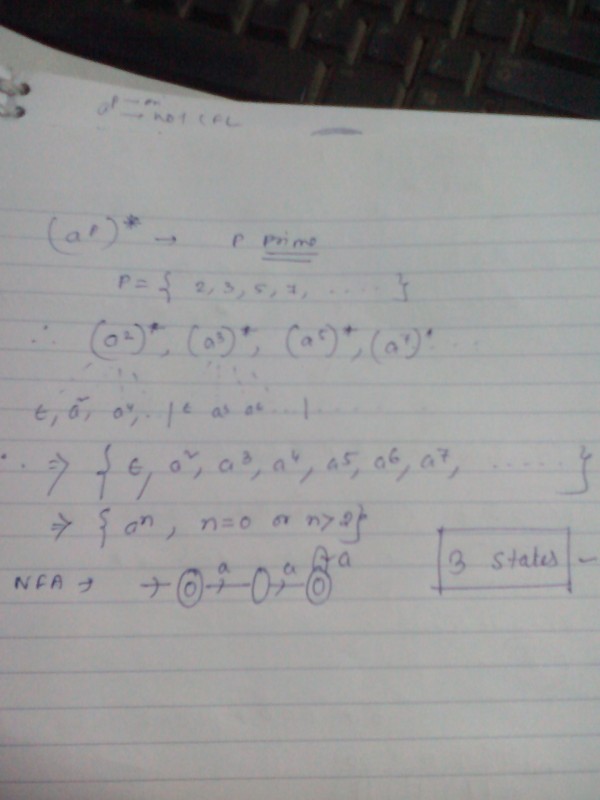 → not CFL
(aᵖ)* → P prime
P = { 2, 3, 5, 7, ..... }
∴ (a²)*, (a³)*, (a⁵)*, (a⁷)* ...
ϵ, a², a⁴, .. | ϵ a³ a⁶ ... | ......
∴ ⇒ { ϵ, a², a³, a⁴, a⁵, a⁶, a⁷, ...... }
⇒ { aⁿ, n=0 or n>2 }
NFA → → a a a
3 states